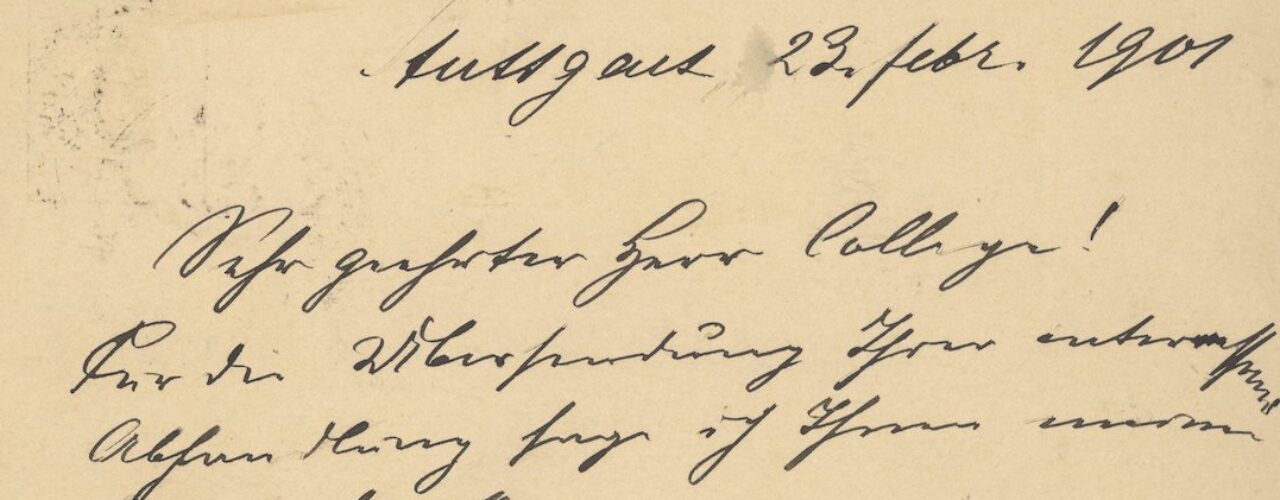 Stuttgart 23. Febr. 1901
Sehr geehrter Herr College!
Für die Übersendung Ihrer interessanten
Abhandlung sage ich Ihnen meinen